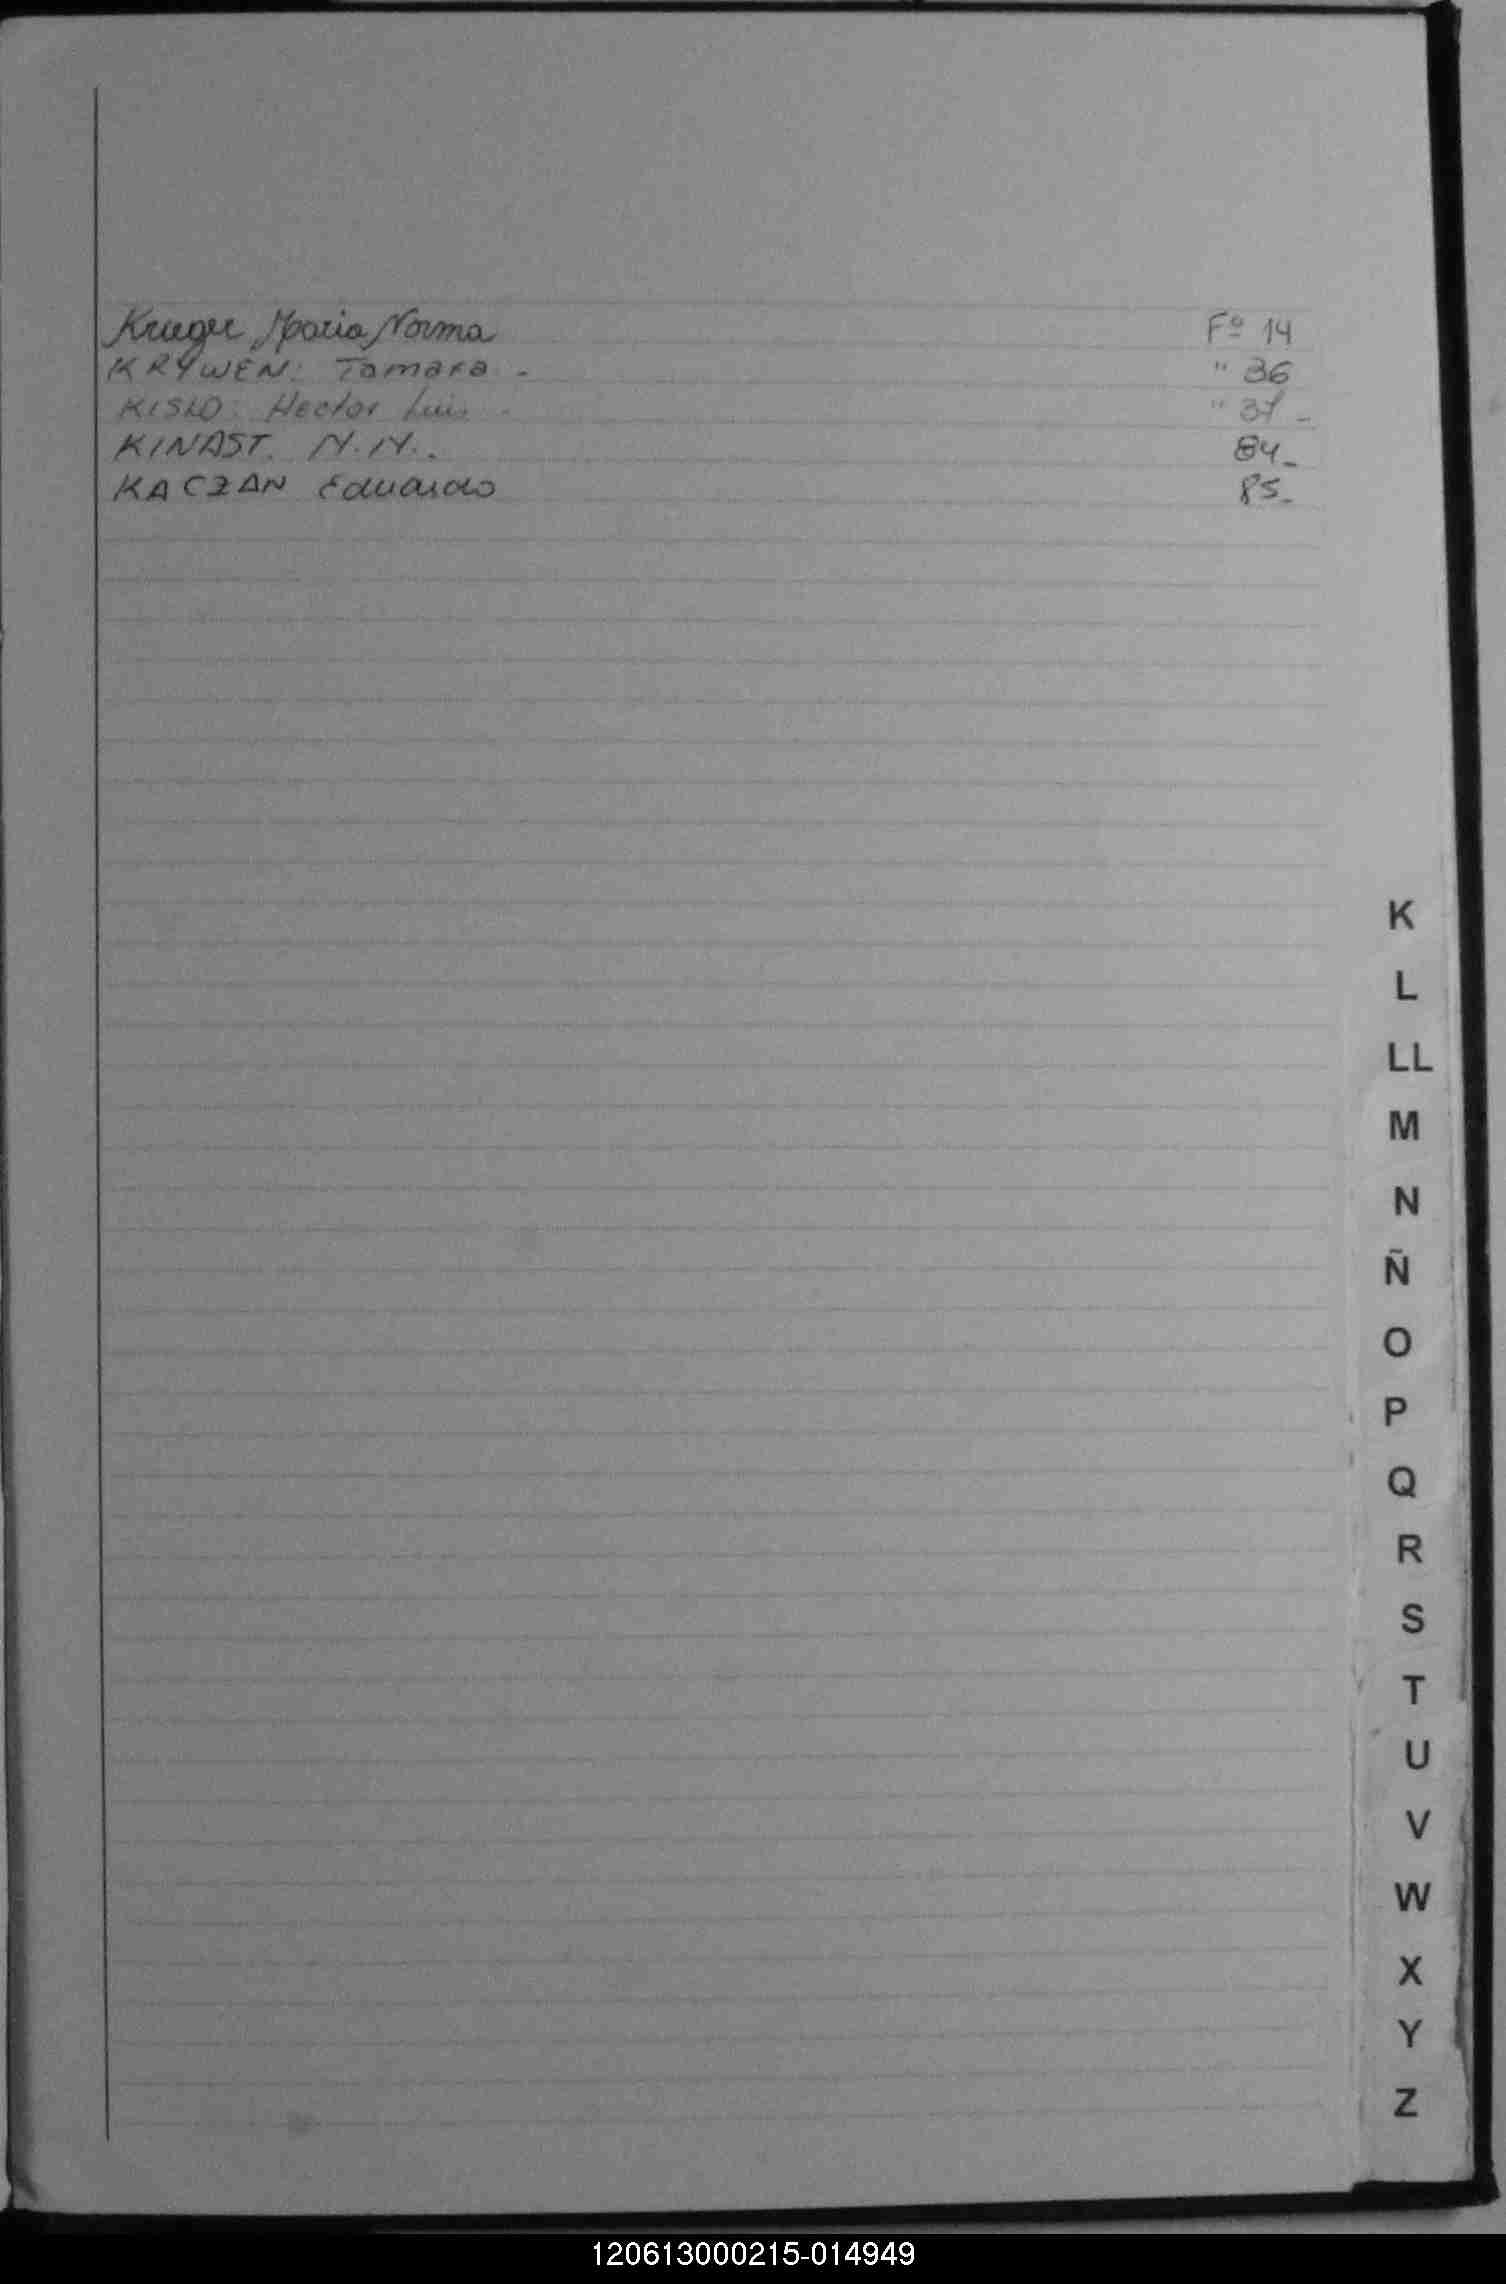 Krueger Maria Norma Fº 14
KRYWEN: Tamara. - " 36
KISLO: Hector Luis. " 37 -
KINAST. N.N.. 84-
KACZAN Eduardo 85-
K
L
LL
M
N
Ñ
O
P
Q
R
S
T
U
V
W
X
Y
Z
120613000215-014949